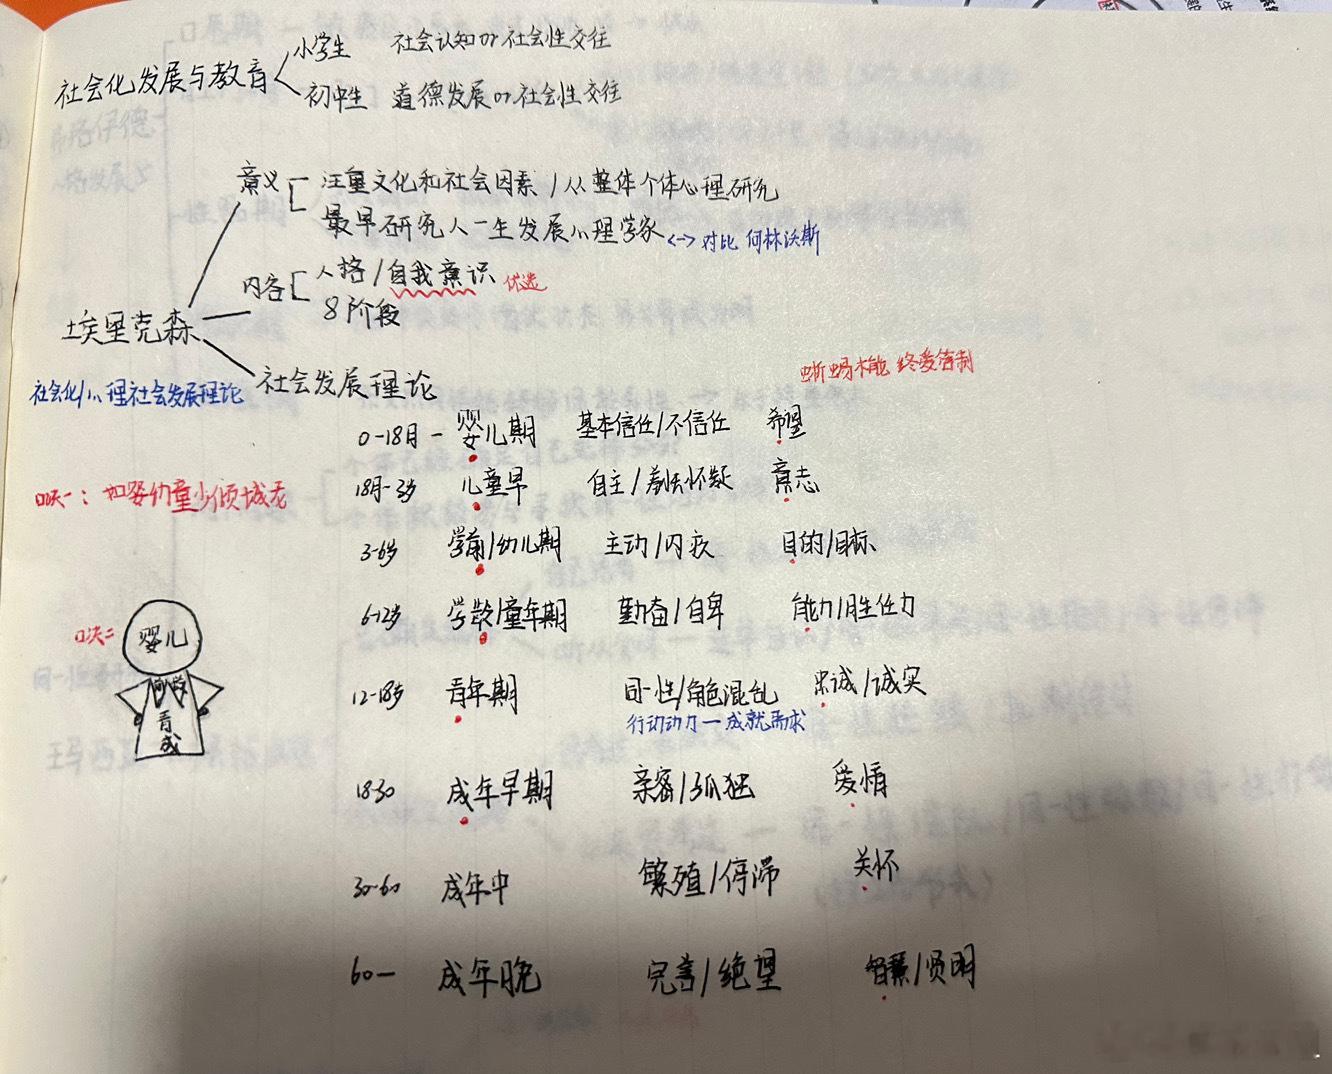 小学生 社会认知or社会性交往
社会化发展与教育
初中生 道德发展or社会性交往
意义 注重文化和社会因素/从整体个体心理研究
最早研究人一生发展心理学家 <-> 对比 何林沃斯
内容 人格/自我意识 优选
8阶段
埃里克森
社会化/心理社会发展理论
社会发展理论
0-18月 - 婴儿期 基本信任/不信任 希望
口诀一：
18月-3岁 儿童早 自主/羞怯怀疑 意志
3-6岁 学前/幼儿期 主动/内疚 目的/目标
6-12岁 学龄/童年期 勤奋/自卑 能力/胜任力
口诀二
婴儿
青
成
12-18岁 青年期 同一性/角色混乱 忠诚/诚实
行动动力一成就需求
18-30 成年早期 亲密/孤独 爱情
30-60 成年中 繁殖/停滞 关怀
60— 成年晚 完善/绝望 智慧/贤明